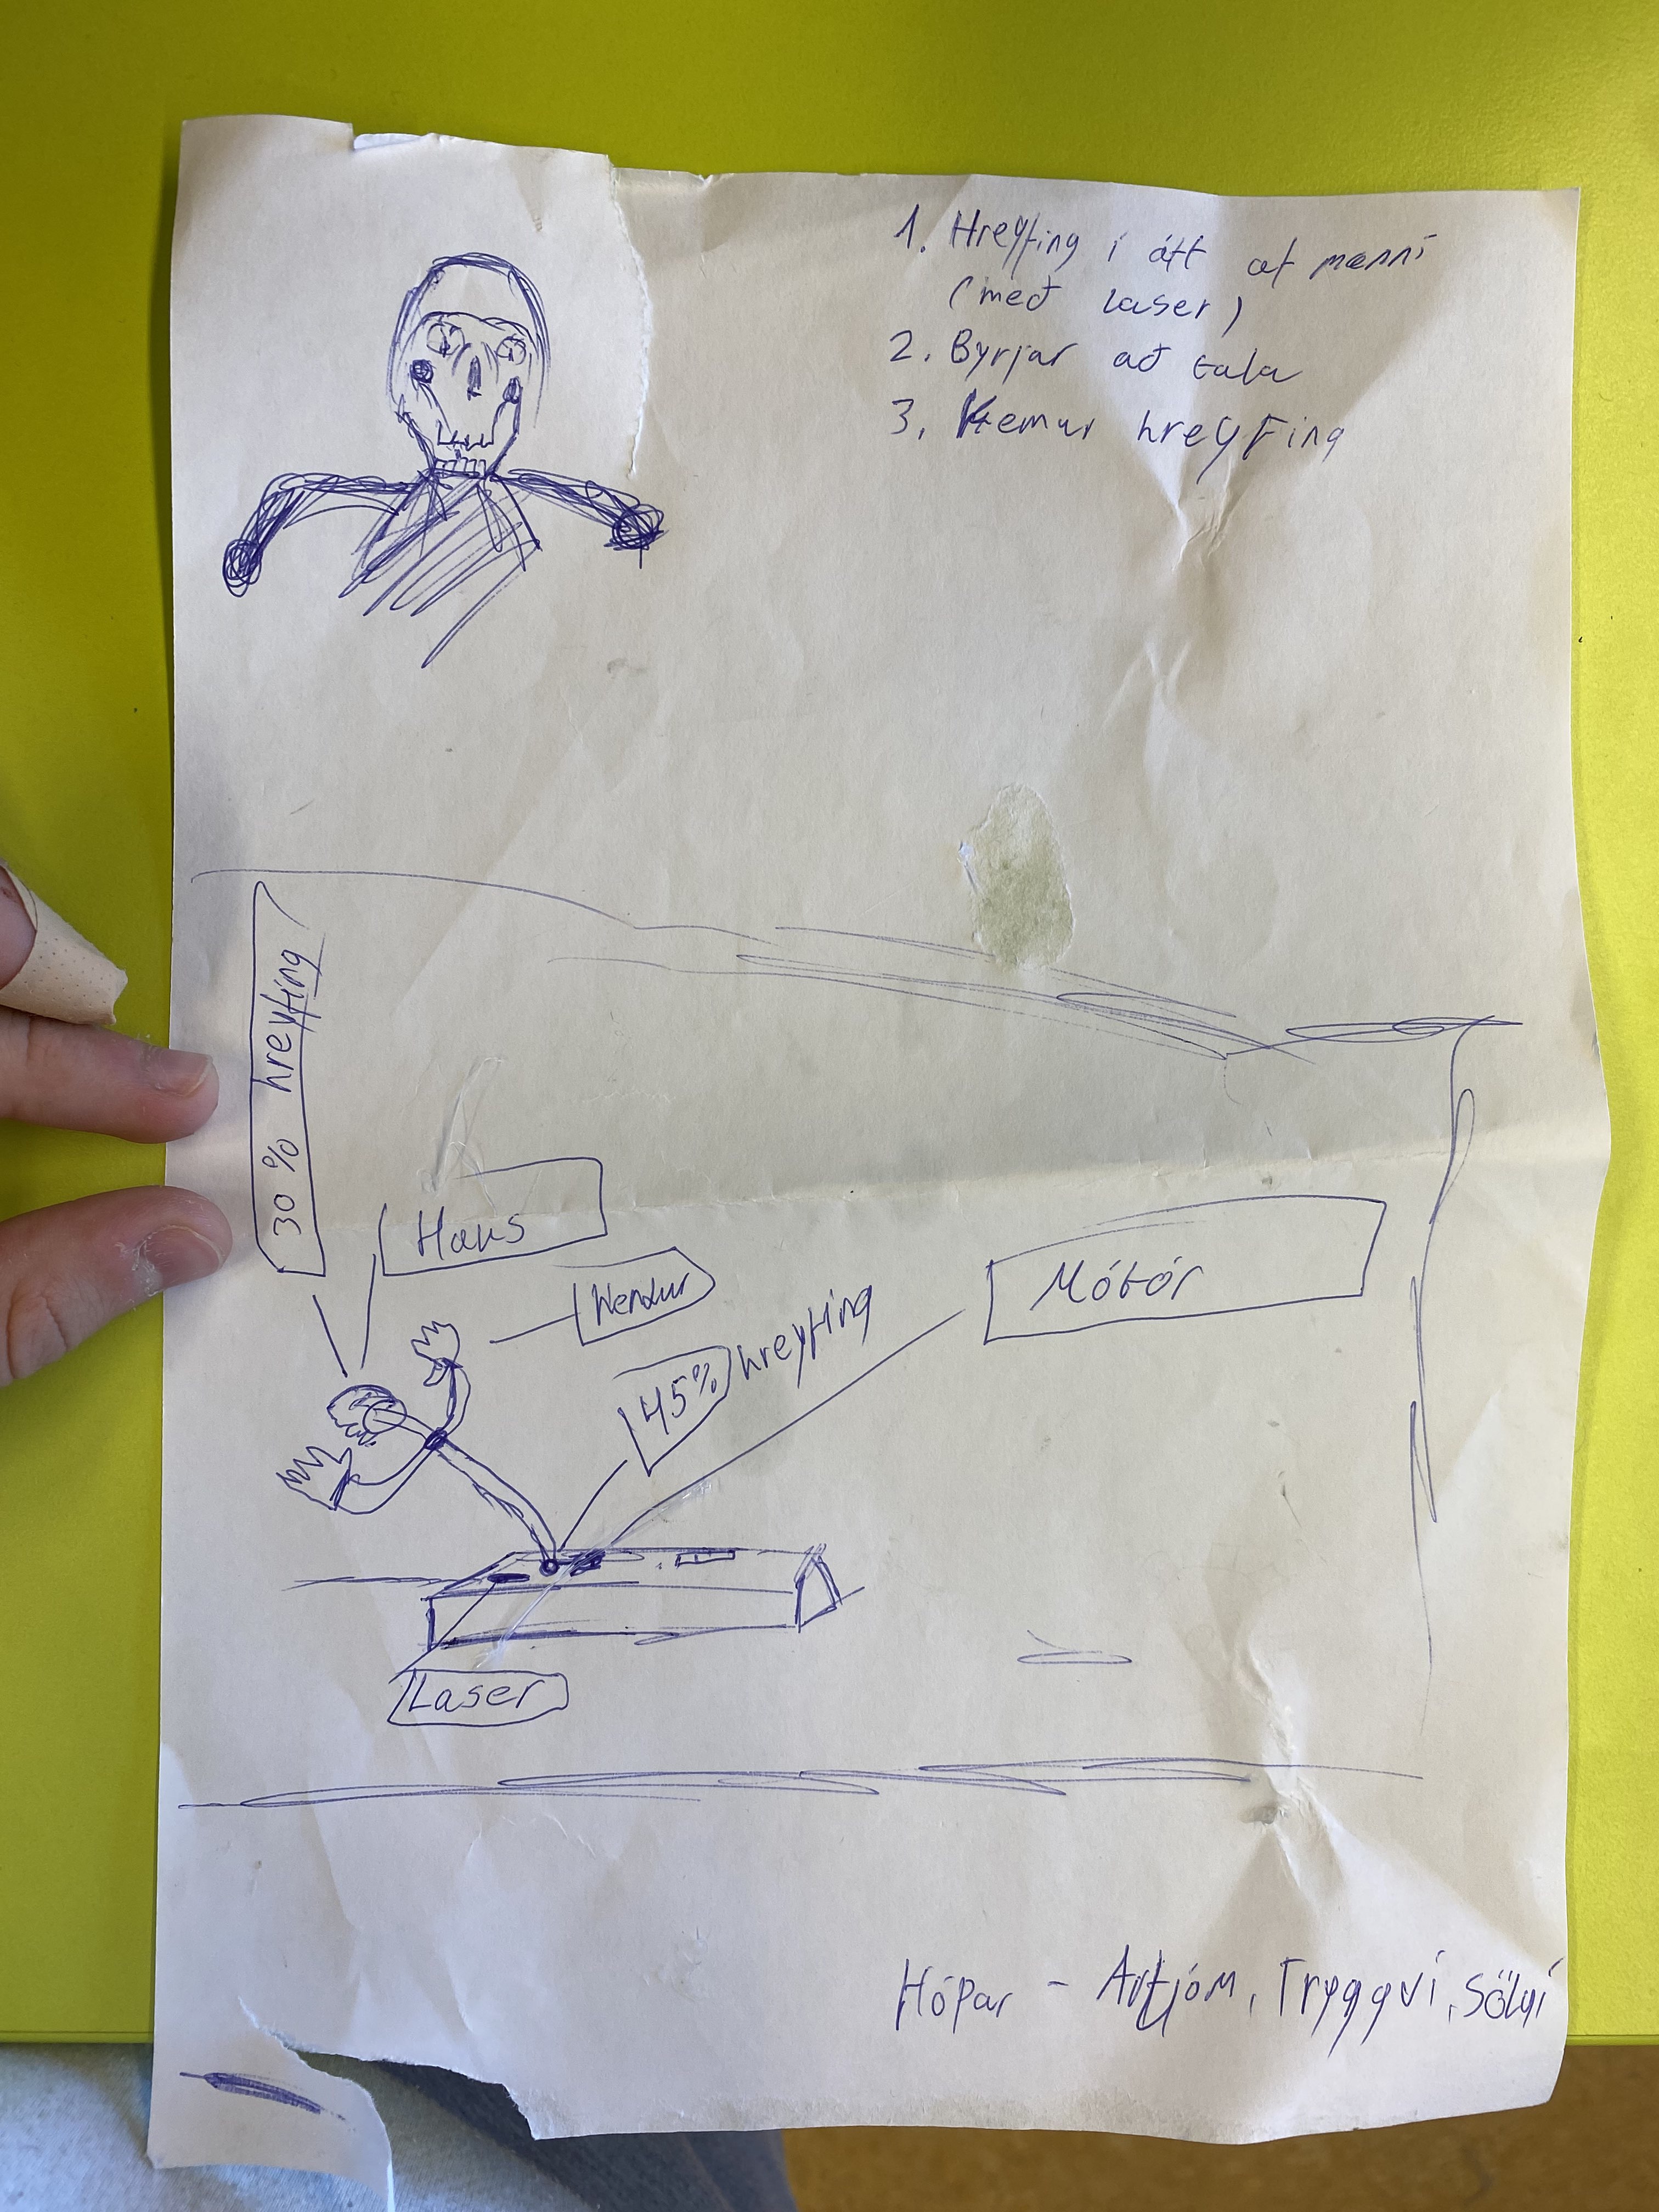 1. Hreyfing í átt af manni
(með laser)
2. Byrjar að tala
3. Kemur hreyfing
30% hreyfing
Haus
Hendur
45% hreyfing
Mótór
Laser
Hópar - Artjóm, Tryggvi, Sölvi